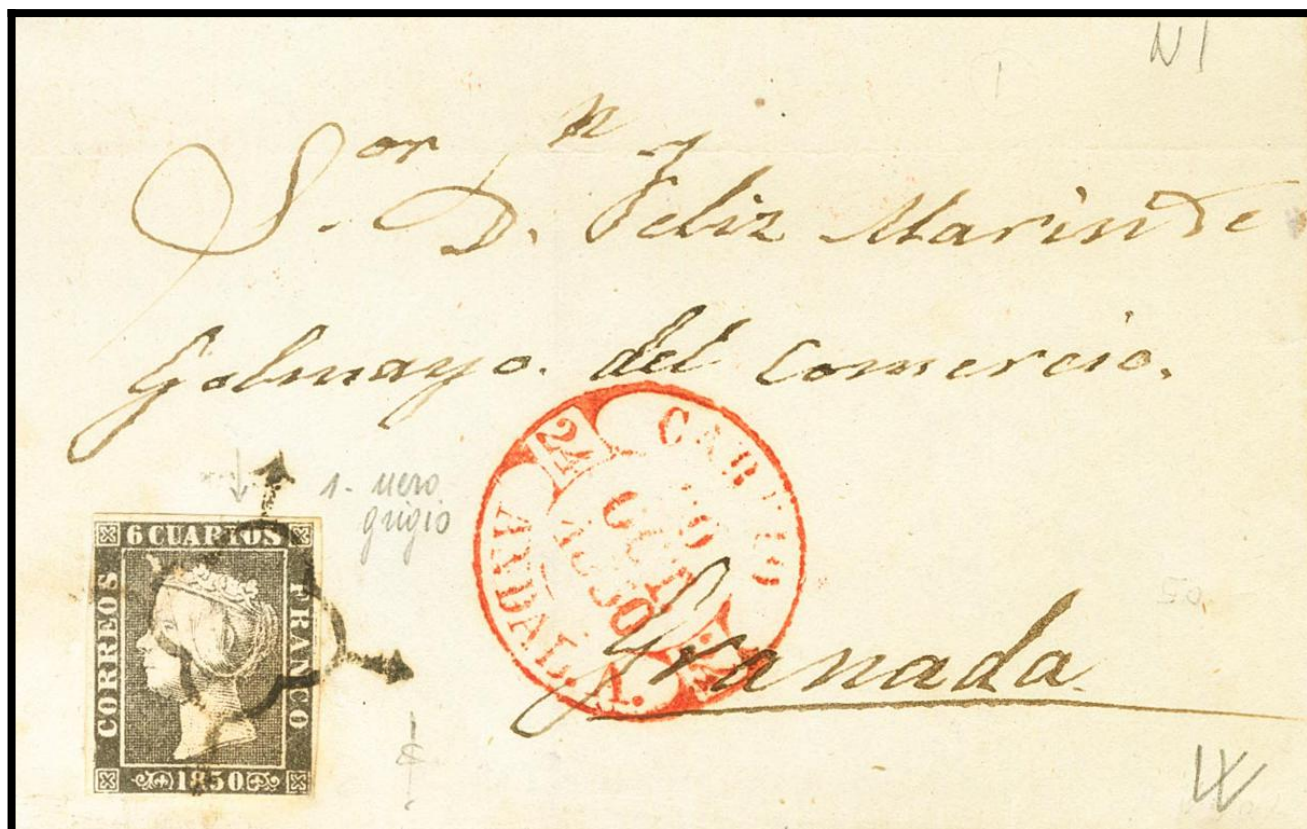 N1
S.or D.n Feliz Marin De
Golmayo. del Comercio.
1- nero
grigio
6 CUARTOS
CORREOS
FRANCO
1850
2
OCT
1850
ANDAL.
Granada